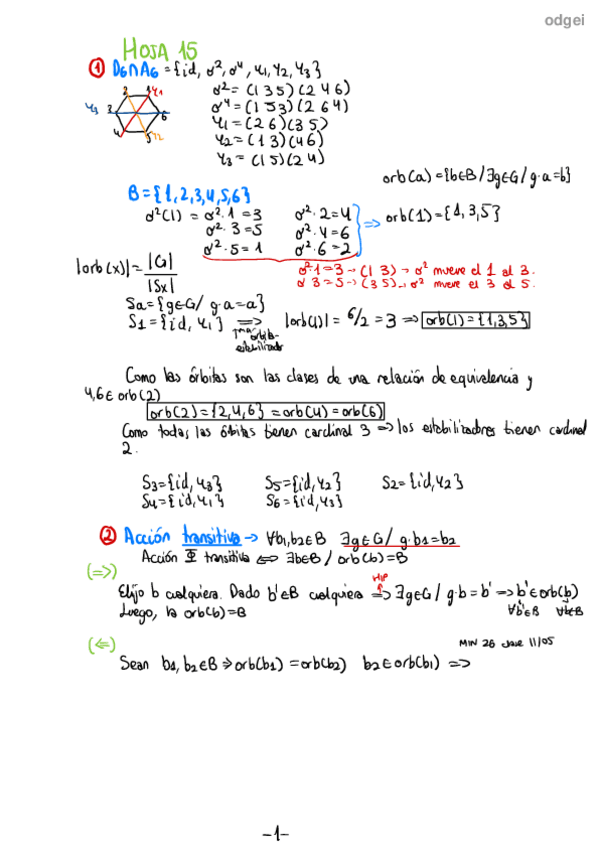 odgei
HOJA 15
① D6∩A6 = {id, σ², σ⁴, Ψ1, Ψ2, Ψ3}
σ² = (1 3 5)(2 4 6)
σ⁴ = (1 5 3)(2 6 4)
Ψ1 = (2 6)(3 5)
Ψ2 = (1 3)(4 6)
Ψ3 = (1 5)(2 4)
2 1 Ψ1
Ψ3 3 6
4 5 Ψ2
orb(a) = {b∈B / ∃g∈G / g·a=b}
B = {1,2,3,4,5,6}
σ²(1) = σ²·1 = 3 σ²·2 = 4
σ²·3 = 5 σ²·4 = 6 => orb(1) = {1,3,5}
σ²·5 = 1 σ²·6 = 2
|orb(x)| = |G| / |Sx|
σ²·1=3 → (1 3) → σ² mueve el 1 al 3.
σ 3 = 5 → (3 5) → σ² mueve el 3 al 5.
Sa = {g∈G / g·a=a}
S1 = {id, Ψ1} => |orb(1)| = 6/2 = 3 => orb(1) = {1,3,5}
Tma órbita-
estabilizador
Como las órbitas son las clases de una relación de equivalencia y
4,6 ∈ orb(2)
orb(2) = {2,4,6} = orb(4) = orb(6)
Como todas las órbitas tienen cardinal 3 => los estabilizadores tienen cardinal
2.
S3 = {id, Ψ3} S5 = {id, Ψ2} S2 = {id, Ψ2}
S4 = {id, Ψ1} S6 = {id, Ψ3}
② Acción transitiva → ∀b1,b2∈B ∃g∈G / g·b1=b2
Acción Φ transitiva <=> ∃b∈B / orb(b)=B
(=>)
HIP
Elijo b cualquiera. Dado b'∈B cualquiera => ∃g∈G / g·b = b' → b'∈orb(b)
∀b'∈B ∀b∈B
Luego, la orb(b)=B
(<=)
MIN 26 clase 11/05
Sean b1, b2∈B => orb(b1) = orb(b2) b2∈orb(b1) =>
-1-